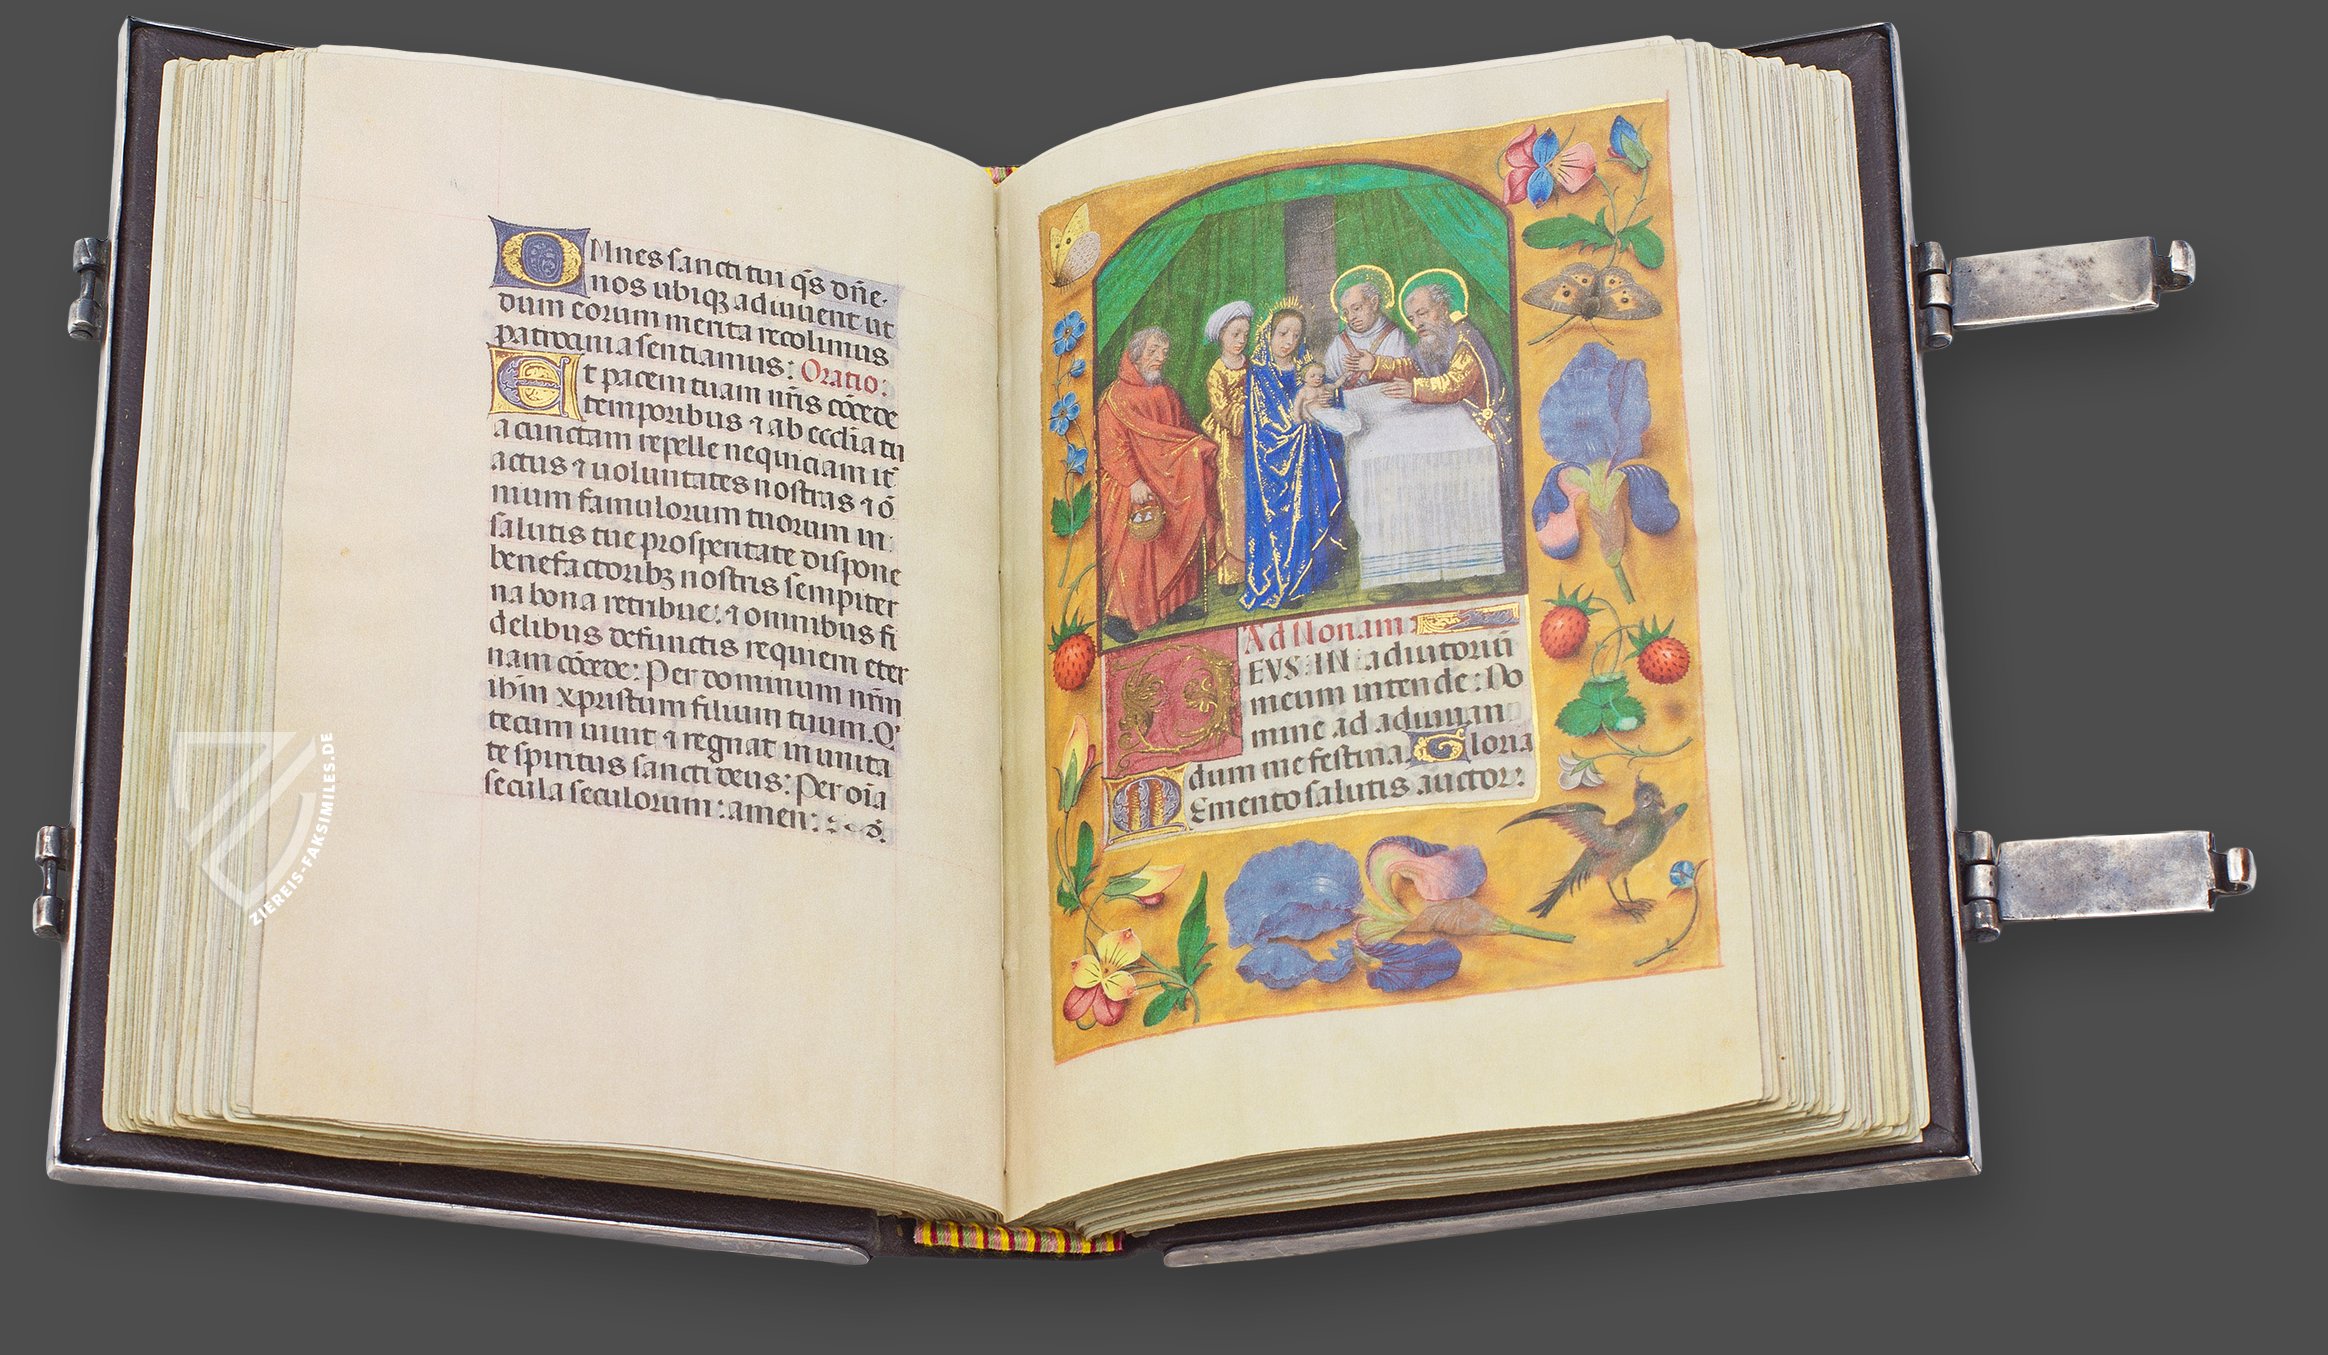 OMnes sancti tui q̄s dn̄e·
nos ubiqꝫ adiuuent ut
dum eorum merita recolimus
patrocinia sentiamus: Oratio:
Et pacem tuam nr̄is cōcede
temporibus ⁊ ab ecclīa tu
a cunctam repelle nequiciam it̄
actus ⁊ uoluntates nostras ⁊ ō
nium famulorum tuorum in
salutis tue prosperitate dispone
benefactoribꝫ nostris sempiter
na bona retribue: ⁊ omnibus fi
delibus defunctis requiem eter
nam cōcede: Per dominum nr̄m
ihm̄ xp̄ristum filium tuum. Q'
tecum uiuit ⁊ regnat in unita
te spiritus sancti deus: Per oīa
secula seculorum: amen:
Ad Nonam:
DEVS IN adiutoriū
meum intende: Do
mine ad adiuuan
dum me festina. Gloria
MEmento salutis auctor:
ZIEREIS-FAKSIMILES.DE